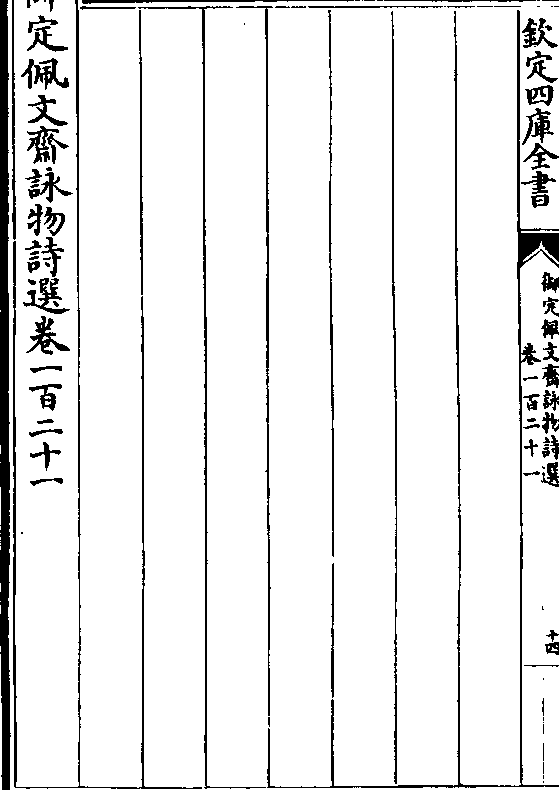 欽定四庫全書
御定佩文齋詠物詩選
卷一百二十一
十四
御定佩文齋詠物詩選卷一百二十一